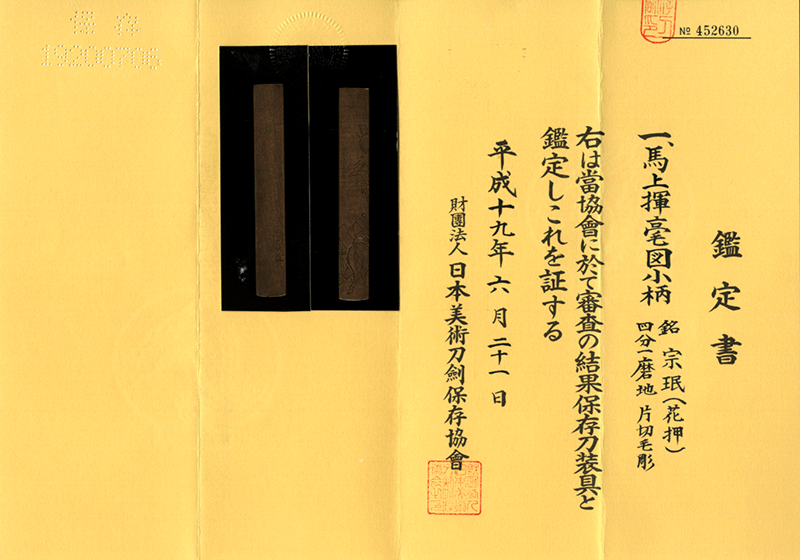 № 452630
鑑定書
一、馬上揮毫図小柄
銘 宗珉(花押)
四分一磨地 片切毛彫
右は當協會に於て審査の結果保存刀装具と
鑑定しこれを証する
平成十九年六月二十一日
財團法人日本美術刀劍保存協會
保存
19200706